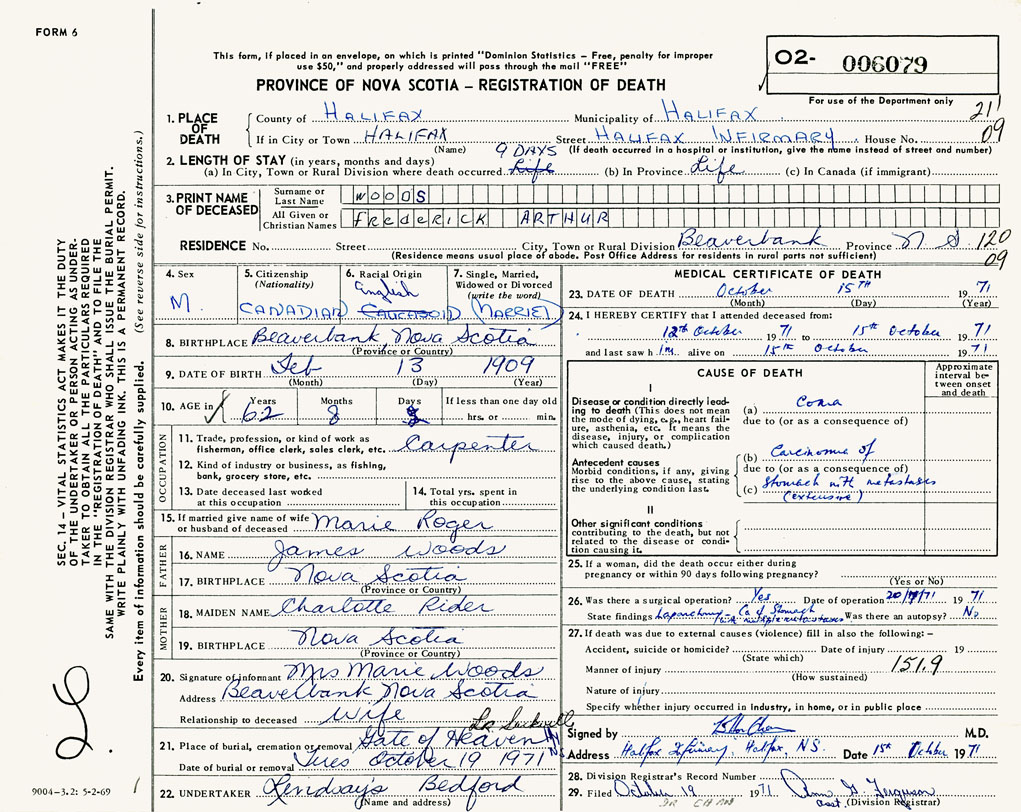 FORM 6
This form, if placed in an envelope, on which is printed "Dominion Statistics – Free, penalty for improper
use $50," and properly addressed will pass through the mail "FREE"
02- 006079
For use of the Department only
PROVINCE OF NOVA SCOTIA – REGISTRATION OF DEATH
21
09
1. PLACE OF DEATH
County of HALIFAX Municipality of HALIFAX
If in City or Town HALIFAX Street HALIFAX INFIRMARY House No.
(Name) (If death occurred in a hospital or institution, give the name instead of street and number)
2. LENGTH OF STAY (in years, months and days) 9 DAYS
(a) In City, Town or Rural Division where death occurred Life (b) In Province Life (c) In Canada (if immigrant)
3. PRINT NAME OF DECEASED
Surname or Last Name WOODS
All Given or Christian Names FREDERICK ARTHUR
RESIDENCE No. Street City, Town or Rural Division Beaverbank Province N.S. 120
09
(Residence means usual place of abode. Post Office Address for residents in rural parts not sufficient)
4. Sex M.
5. Citizenship (Nationality) CANADIAN
6. Racial Origin English CAUCASOID
7. Single, Married, Widowed or Divorced (write the word) MARRIED
8. BIRTHPLACE Beaverbank, Nova Scotia
(Province or Country)
9. DATE OF BIRTH Feb 13 1909
(Month) (Day) (Year)
10. AGE in Years 62 Months 8 Days If less than one day old hrs. or min.
OCCUPATION
11. Trade, profession, or kind of work as
fisherman, office clerk, sales clerk, etc. Carpenter
12. Kind of industry or business, as fishing,
bank, grocery store, etc.
13. Date deceased last worked
at this occupation
14. Total yrs. spent in
this occupation
15. If married give name of wife
or husband of deceased Marie Roger
FATHER
16. NAME James Woods
17. BIRTHPLACE Nova Scotia
(Province or Country)
MOTHER
18. MAIDEN NAME Charlotte Rider
19. BIRTHPLACE Nova Scotia
(Province or Country)
20. Signature of informant Mrs Marie Woods
Address Beaverbank Nova Scotia
Relationship to deceased Wife
Lr Sackville
21. Place of burial, cremation or removal Gate of Heaven NS
Date of burial or removal Tues October 19 1971
22. UNDERTAKER Lindsay's Bedford
(Name and address)
MEDICAL CERTIFICATE OF DEATH
23. DATE OF DEATH October 15TH 1971
(Month) (Day) (Year)
24. I HEREBY CERTIFY that I attended deceased from:
12th October 1971 to 15th October 1971
and last saw him alive on 15th October 1971
CAUSE OF DEATH
Approximate interval between onset and death
I
Disease or condition directly leading
to death (This does not mean
the mode of dying, e.g., heart failure,
asthenia, etc. It means the
disease, injury, or complication
which caused death.)
(a) Coma
due to (or as a consequence of)
Antecedent causes
Morbid conditions, if any, giving
rise to the above cause, stating
the underlying condition last.
(b) Carcinoma of
due to (or as a consequence of)
(c) Stomach with metastases
(extensive)
II
Other significant conditions
contributing to the death, but not
related to the disease or condition
causing it.
25. If a woman, did the death occur either during
pregnancy or within 90 days following pregnancy?
(Yes or No)
26. Was there a surgical operation? Yes Date of operation 1971
State findings Ca of Stomach with multiple metastases Was there an autopsy? No
27. If death was due to external causes (violence) fill in also the following: –
Accident, suicide or homicide? Date of injury 19
(State which)
Manner of injury 151.9
(How sustained)
Nature of injury
Specify whether injury occurred in industry, in home, or in public place
Signed by M.D.
Address Halifax Infirmary, Halifax, N.S. Date 15th October 1971
28. Division Registrar's Record Number
29. Filed October 19 1971 Ann G. Ferguson
asst. (Division Registrar)
SEC. 14 – VITAL STATISTICS ACT MAKES IT THE DUTY
OF THE UNDERTAKER OR PERSON ACTING AS UNDERTAKER
TO OBTAIN ALL THE PARTICULARS REQUIRED
IN THE "REGISTRATION OF DEATH" AND TO FILE THE
SAME WITH THE DIVISION REGISTRAR WHO SHALL ISSUE THE BURIAL PERMIT.
WRITE PLAINLY WITH UNFADING INK. THIS IS A PERMANENT RECORD.
Every item of information should be carefully supplied. (See reverse side for instructions.)
9004-3.2: 5-2-69